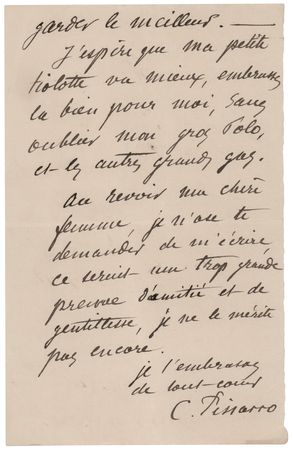 garder le meilleur. —
J'espère que ma petite
va mieux, embrasse
la bien pour moi, sans
oublier mon gros
et les autres grands gas.
Au revoir ma chère
femme, je n'ose te
demander de m'écrire,
ce serait une trop grande
preuve d'amitié et de
gentillesse, je ne le mérite
pas encore.
je t'embrasse
de tout cœur
C. Pissarro